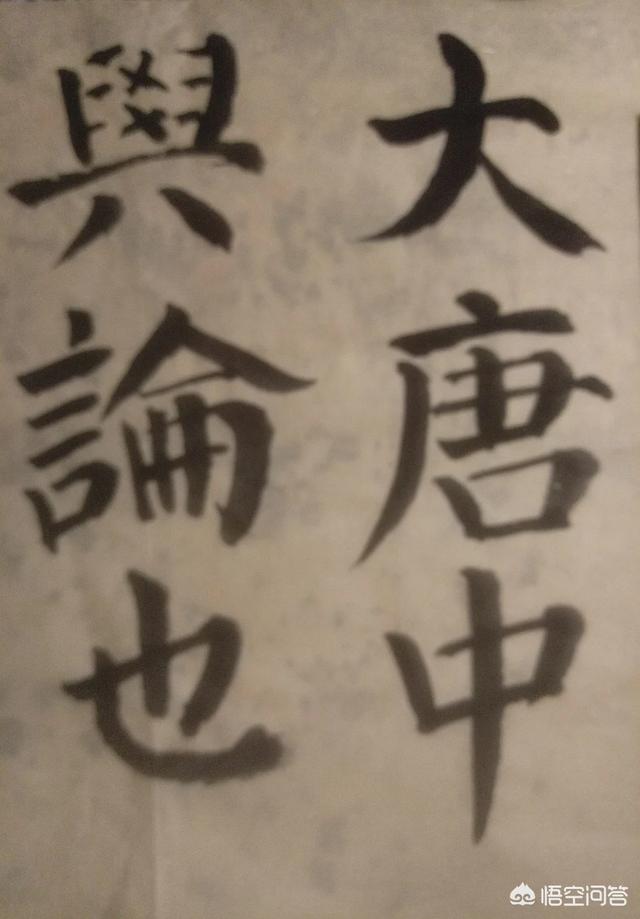 大唐中
與論也
悟空问答